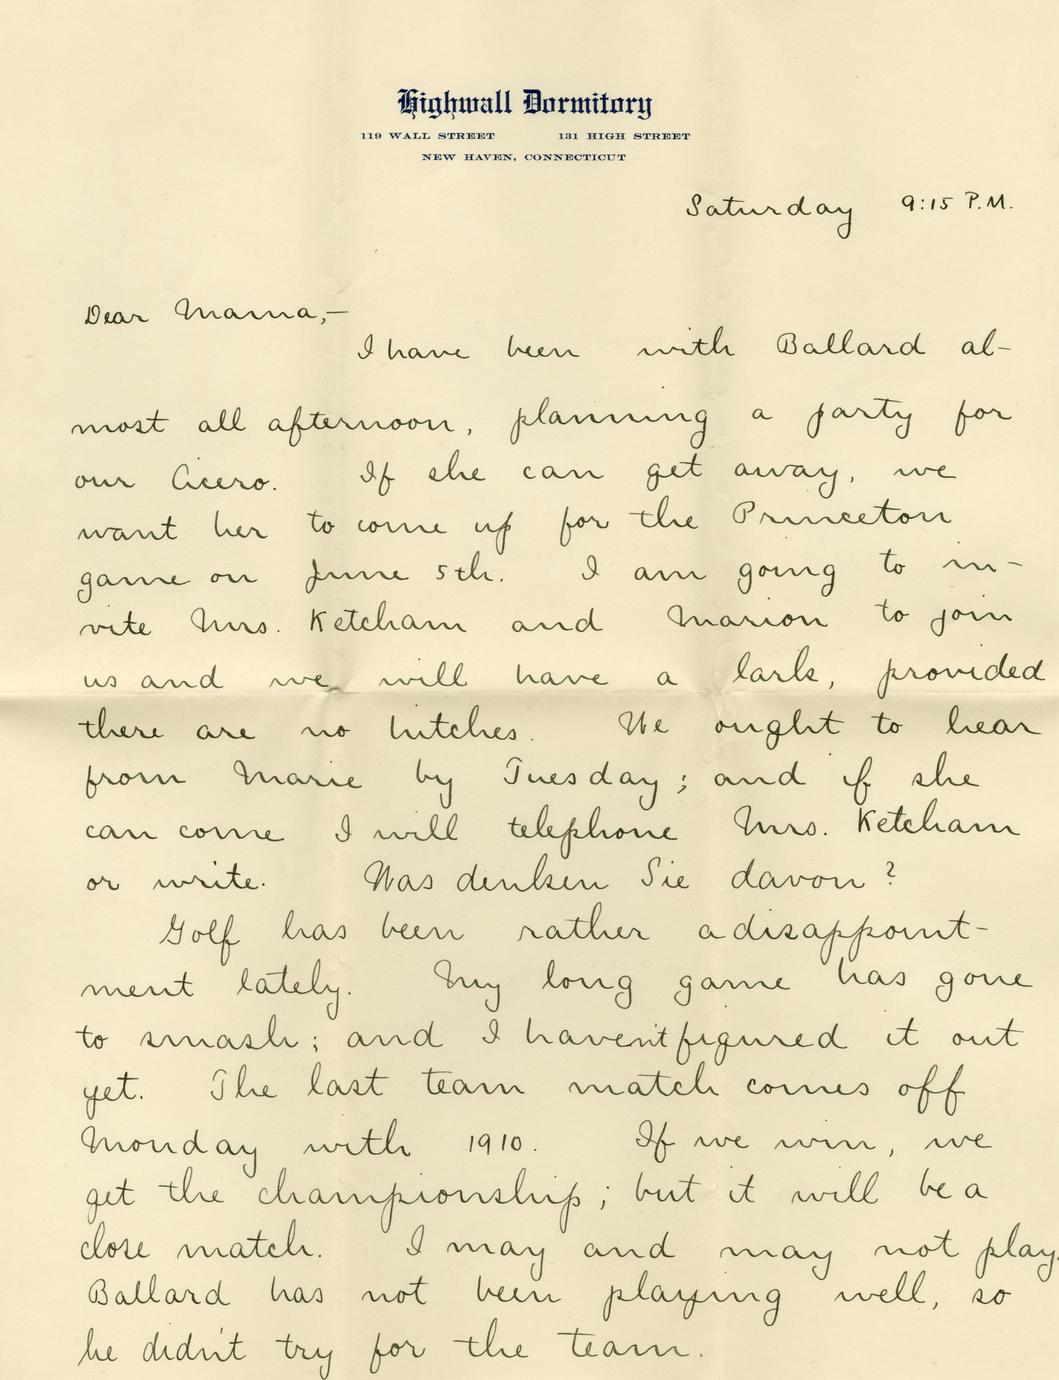 Highwall Dormitory
119 WALL STREET 131 HIGH STREET
NEW HAVEN, CONNECTICUT
Saturday 9:15 P.M.
Dear Mama,—
I have been with Ballard al-
most all afternoon, planning a party for
our Cicero. If she can get away, we
want her to come up for the Princeton
game on June 5th. I am going to in-
vite Mrs. Ketcham and Marion to join
us and we will have a lark, provided
there are no hitches. We ought to hear
from Marie by Tuesday; and if she
can come I will telephone Mrs. Ketcham
or write. Was denken Sie davon?
Golf has been rather a disappoint-
ment lately. My long game has gone
to smash; and I haven't figured it out
yet. The last team match comes off
Monday with 1910. If we win, we
get the championship; but it will be a
close match. I may and may not play.
Ballard has not been playing well, so
he didn't try for the team.